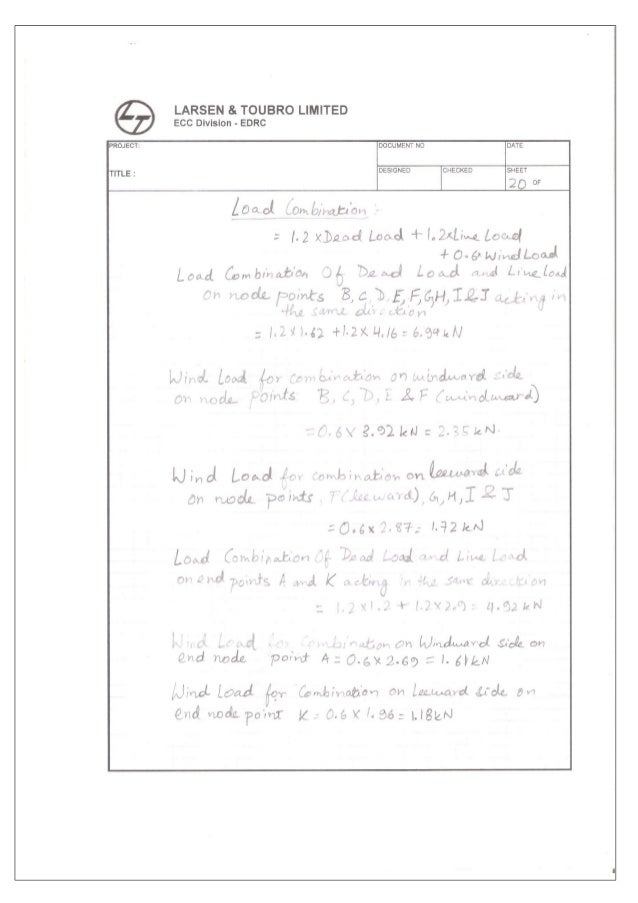 LARSEN & TOUBRO LIMITED
ECC Division - EDRC
PROJECT:
DOCUMENT NO
DATE
TITLE :
DESIGNED
CHECKED
SHEET
20 OF
Load Combination :-
= 1.2 x Dead Load + 1.2xLive Load
+ 0.6 Wind Load
Load Combination Of Dead Load and Live load
on node points B, C, D, E, F, G, H, I & J acting in
the same direction
= 1.2 X 1.62 + 1.2 X 4.16 = 6.94 kN
Wind Load for combination on windward side
on node points B, C, D, E & F (windward)
= 0.6 X 3.92 kN = 2.35 kN.
Wind Load for combination on leeward side
on node points, F (leeward), G, H, I & J
= 0.6 x 2.87 = 1.72 kN
Load Combination Of Dead Load and Live Load
on end points A and K acting in the same direction
= 1.2 x 1.2 + 1.2 x 2.9 = 4.92 kN
Wind Load for Combination on Windward side on
end node point A = 0.6 X 2.69 = 1.61 kN
Wind Load for Combination on Leeward side on
end node point K = 0.6 X 1.96 = 1.18 kN